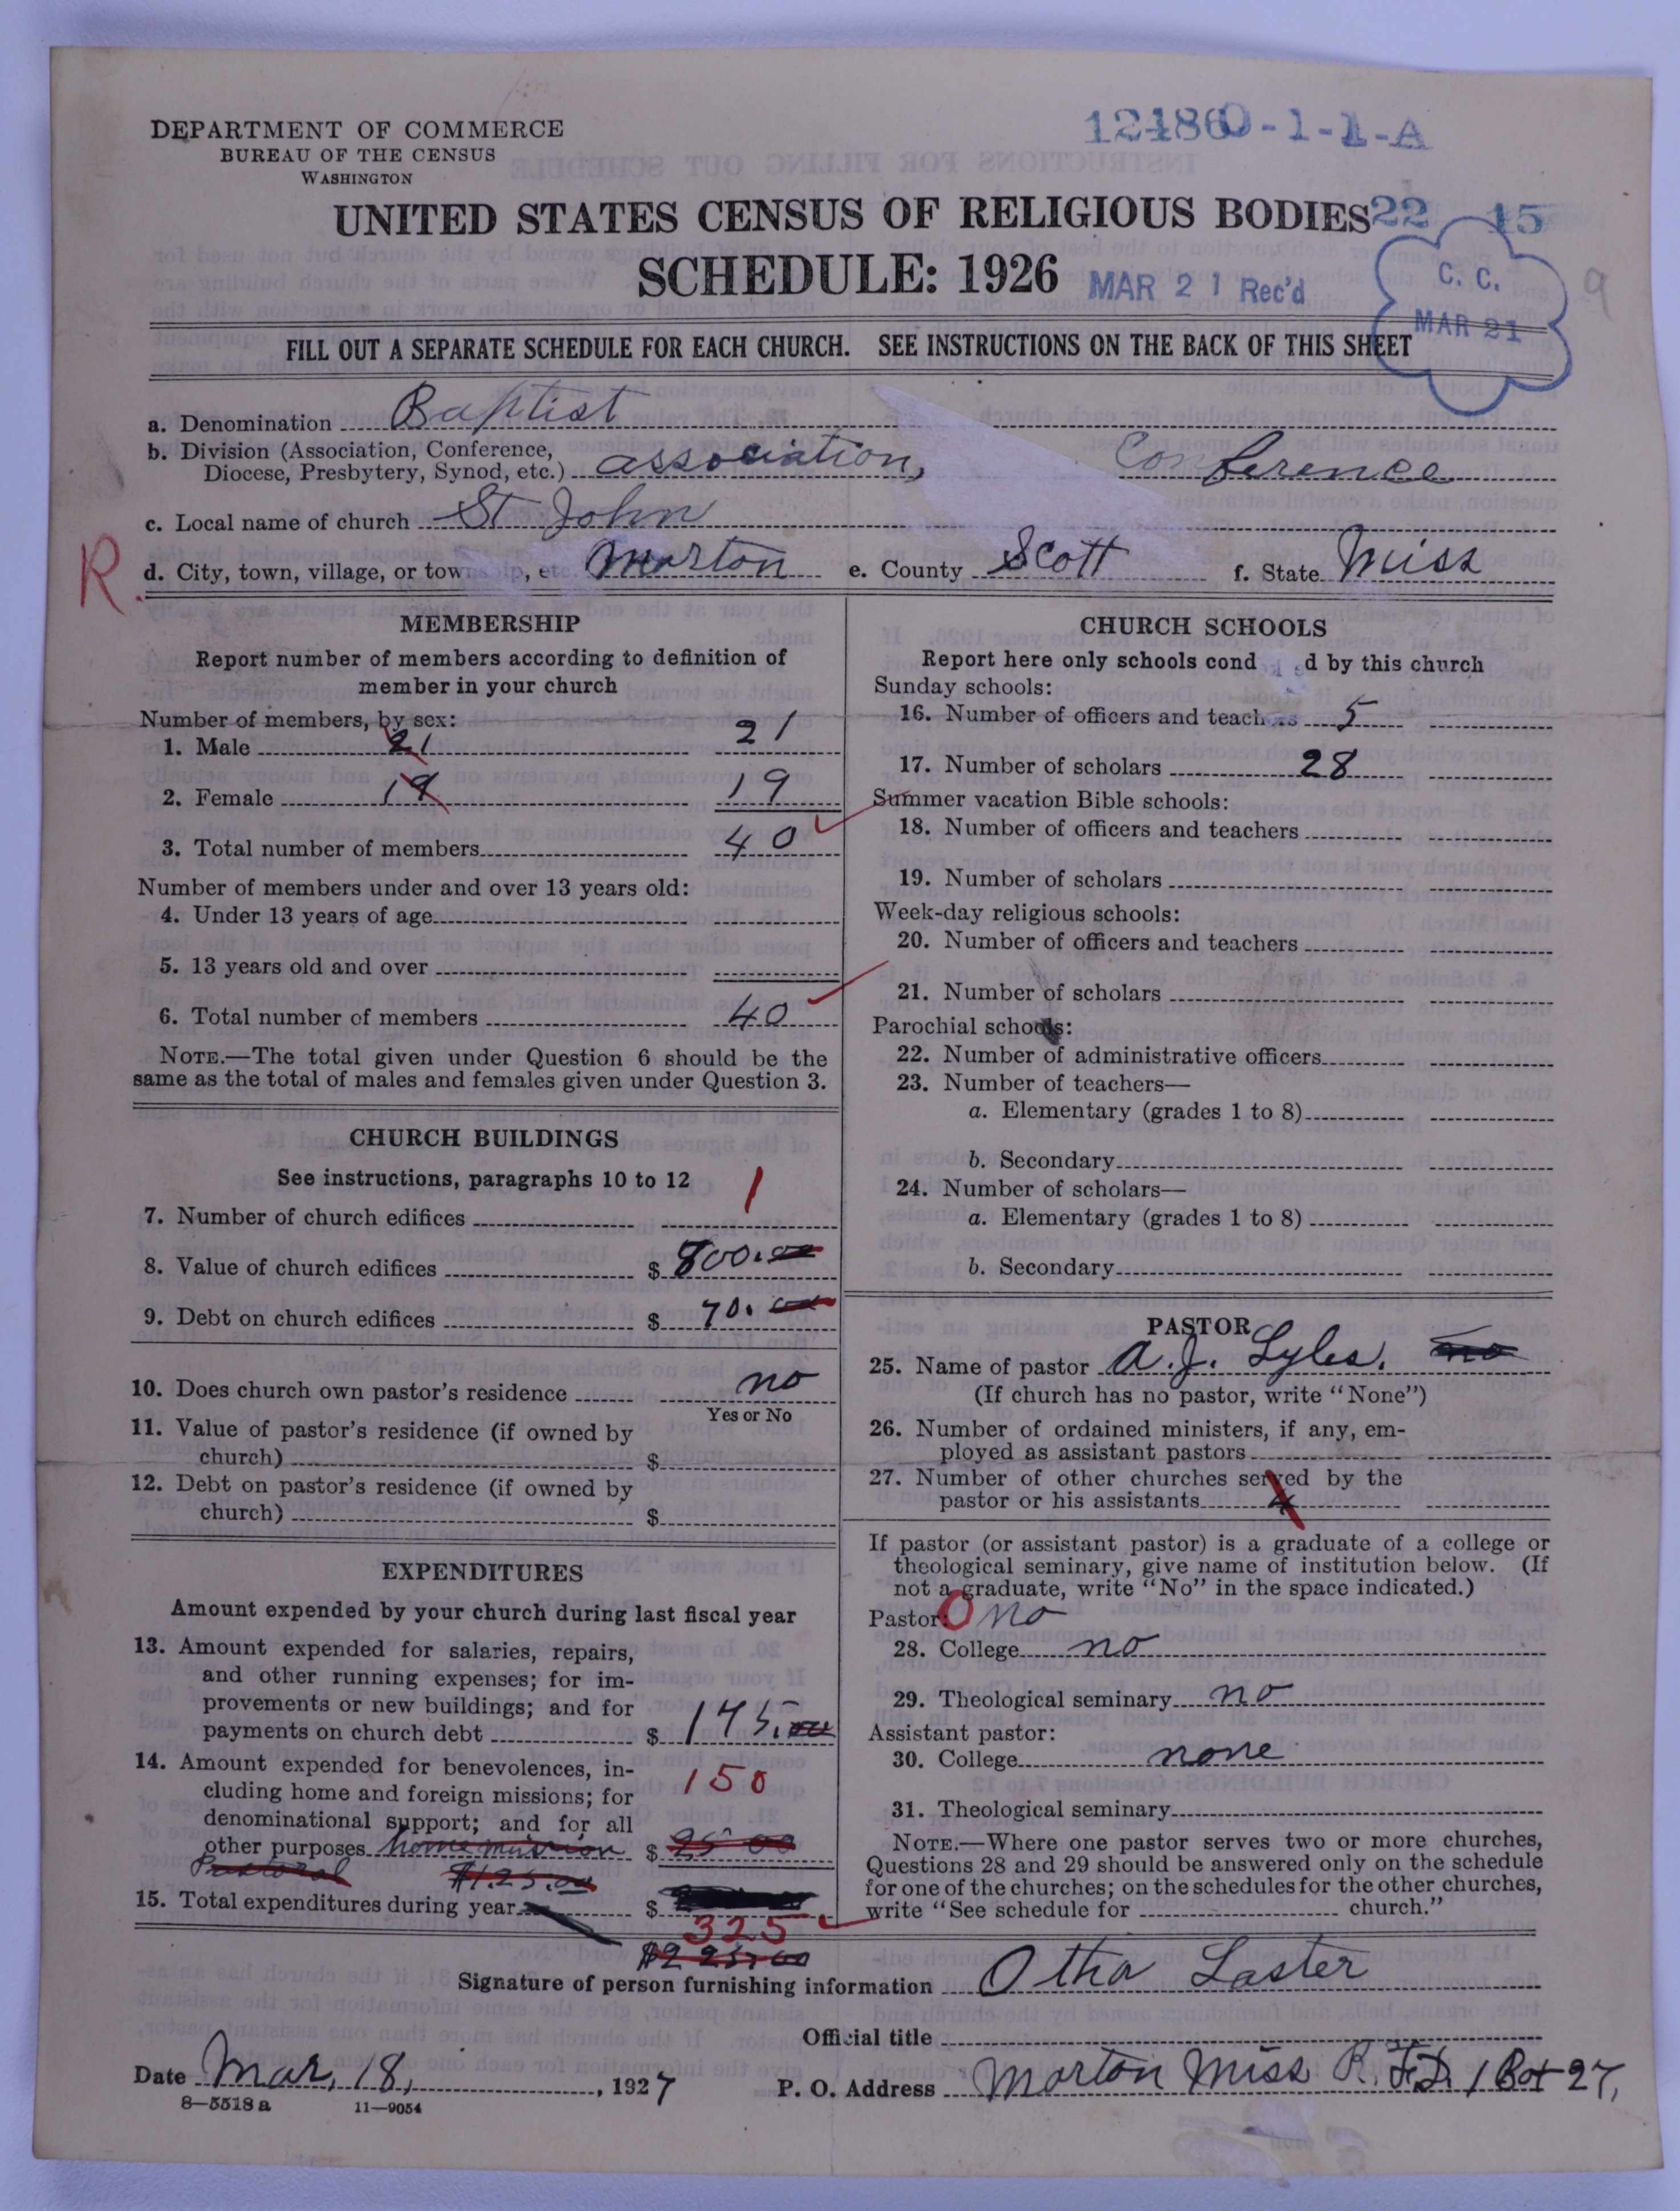 DEPARTMENT OF COMMERCE
BUREAU OF THE CENSUS
WASHINGTON
12486O-1-1-A
UNITED STATES CENSUS OF RELIGIOUS BODIES 22 15
SCHEDULE: 1926 MAR 21 Rec'd
C. C.
MAR 21
9
FILL OUT A SEPARATE SCHEDULE FOR EACH CHURCH. SEE INSTRUCTIONS ON THE BACK OF THIS SHEET
a. Denomination Baptist
b. Division (Association, Conference,
Diocese, Presbytery, Synod, etc.) association, Conference
c. Local name of church St John
R. d. City, town, village, or township, etc. Morton e. County Scott f. State Miss
MEMBERSHIP
Report number of members according to definition of
member in your church
Number of members, by sex:
1. Male 21 21
2. Female 19 19
3. Total number of members 40
Number of members under and over 13 years old:
4. Under 13 years of age
5. 13 years old and over
6. Total number of members 40
NOTE.—The total given under Question 6 should be the
same as the total of males and females given under Question 3.
CHURCH BUILDINGS
See instructions, paragraphs 10 to 12
7. Number of church edifices 1
8. Value of church edifices $ 800.00
9. Debt on church edifices $ 70.00
10. Does church own pastor's residence no
Yes or No
11. Value of pastor's residence (if owned by
church) $
12. Debt on pastor's residence (if owned by
church) $
EXPENDITURES
Amount expended by your church during last fiscal year
13. Amount expended for salaries, repairs,
and other running expenses; for im-
provements or new buildings; and for
payments on church debt $ 175.00
14. Amount expended for benevolences, in-
cluding home and foreign missions; for 150
denominational support; and for all
other purposes home mission $ 25 00
Pastoral $125.00
15. Total expenditures during year $
325
$225.00
CHURCH SCHOOLS
Report here only schools cond d by this church
Sunday schools:
16. Number of officers and teachers 5
17. Number of scholars 28
Summer vacation Bible schools:
18. Number of officers and teachers
19. Number of scholars
Week-day religious schools:
20. Number of officers and teachers
21. Number of scholars
Parochial schools:
22. Number of administrative officers
23. Number of teachers—
a. Elementary (grades 1 to 8)
b. Secondary
24. Number of scholars—
a. Elementary (grades 1 to 8)
b. Secondary
PASTOR
25. Name of pastor A. J. Lyles. no
(If church has no pastor, write "None")
26. Number of ordained ministers, if any, em-
ployed as assistant pastors
27. Number of other churches served by the
pastor or his assistants 4
If pastor (or assistant pastor) is a graduate of a college or
theological seminary, give name of institution below. (If
not a graduate, write "No" in the space indicated.)
Pastor: O no
28. College no
29. Theological seminary no
Assistant pastor:
30. College none
31. Theological seminary
NOTE.—Where one pastor serves two or more churches,
Questions 28 and 29 should be answered only on the schedule
for one of the churches; on the schedules for the other churches,
write "See schedule for church."
Signature of person furnishing information Otha Laster
Official title
Date Mar, 18, , 1927 P. O. Address Morton Miss R. F.D. 1 Box 27,
8—5518 a 11—9054